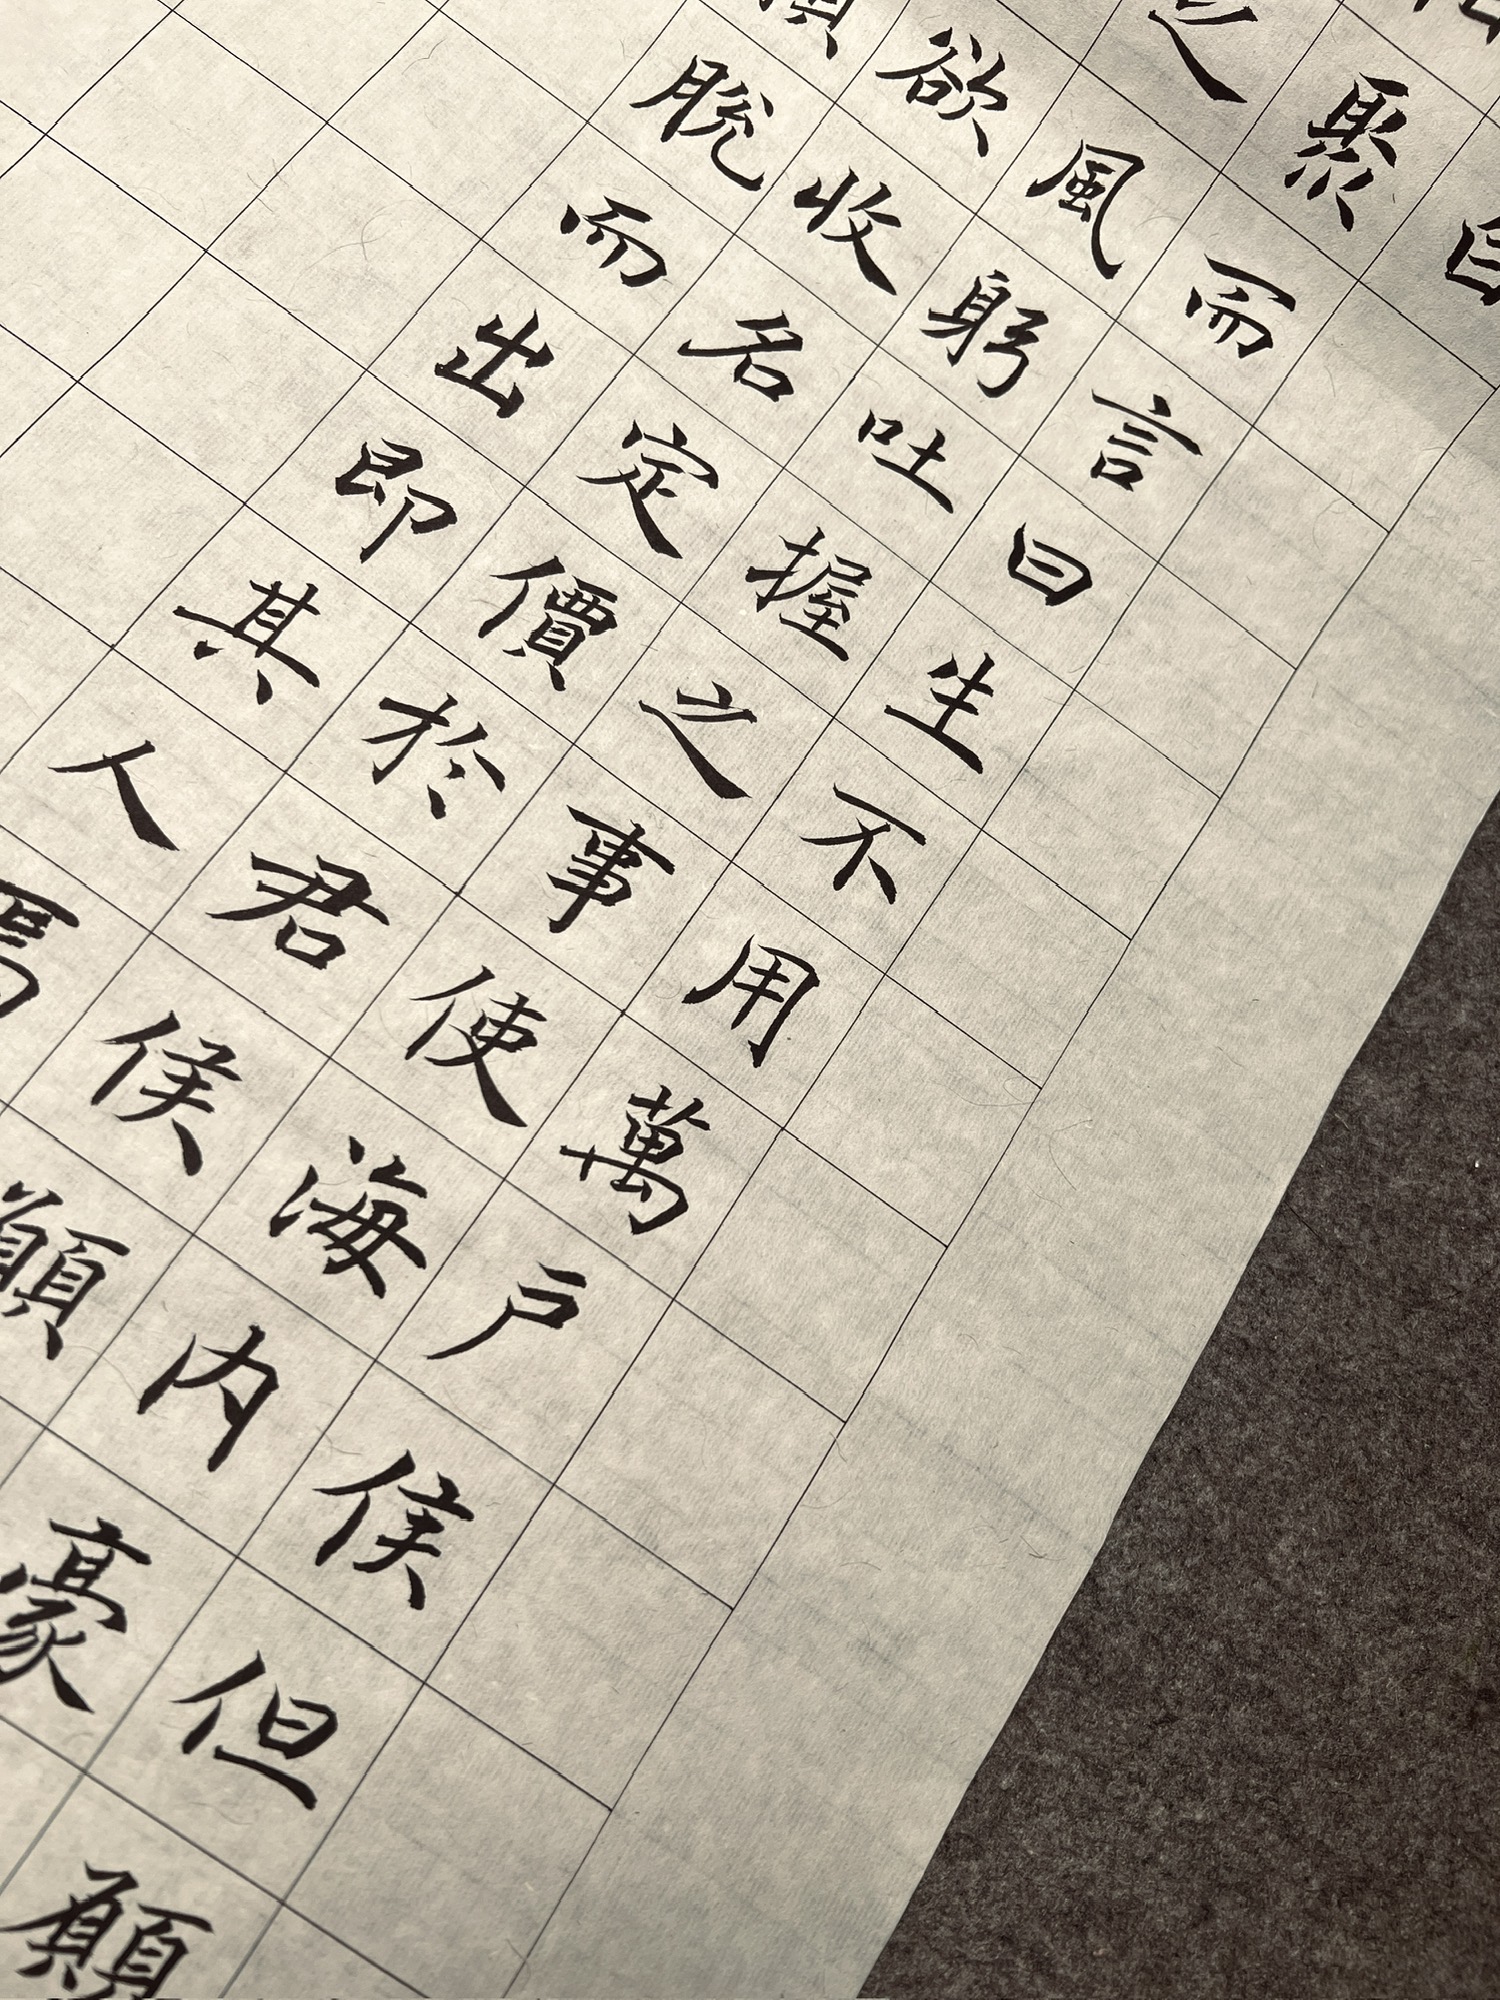 聚而言曰生不用萬戶侯但願
之風躬吐握之事使海內豪
欲收名定價於君侯願
脫而出即其人焉